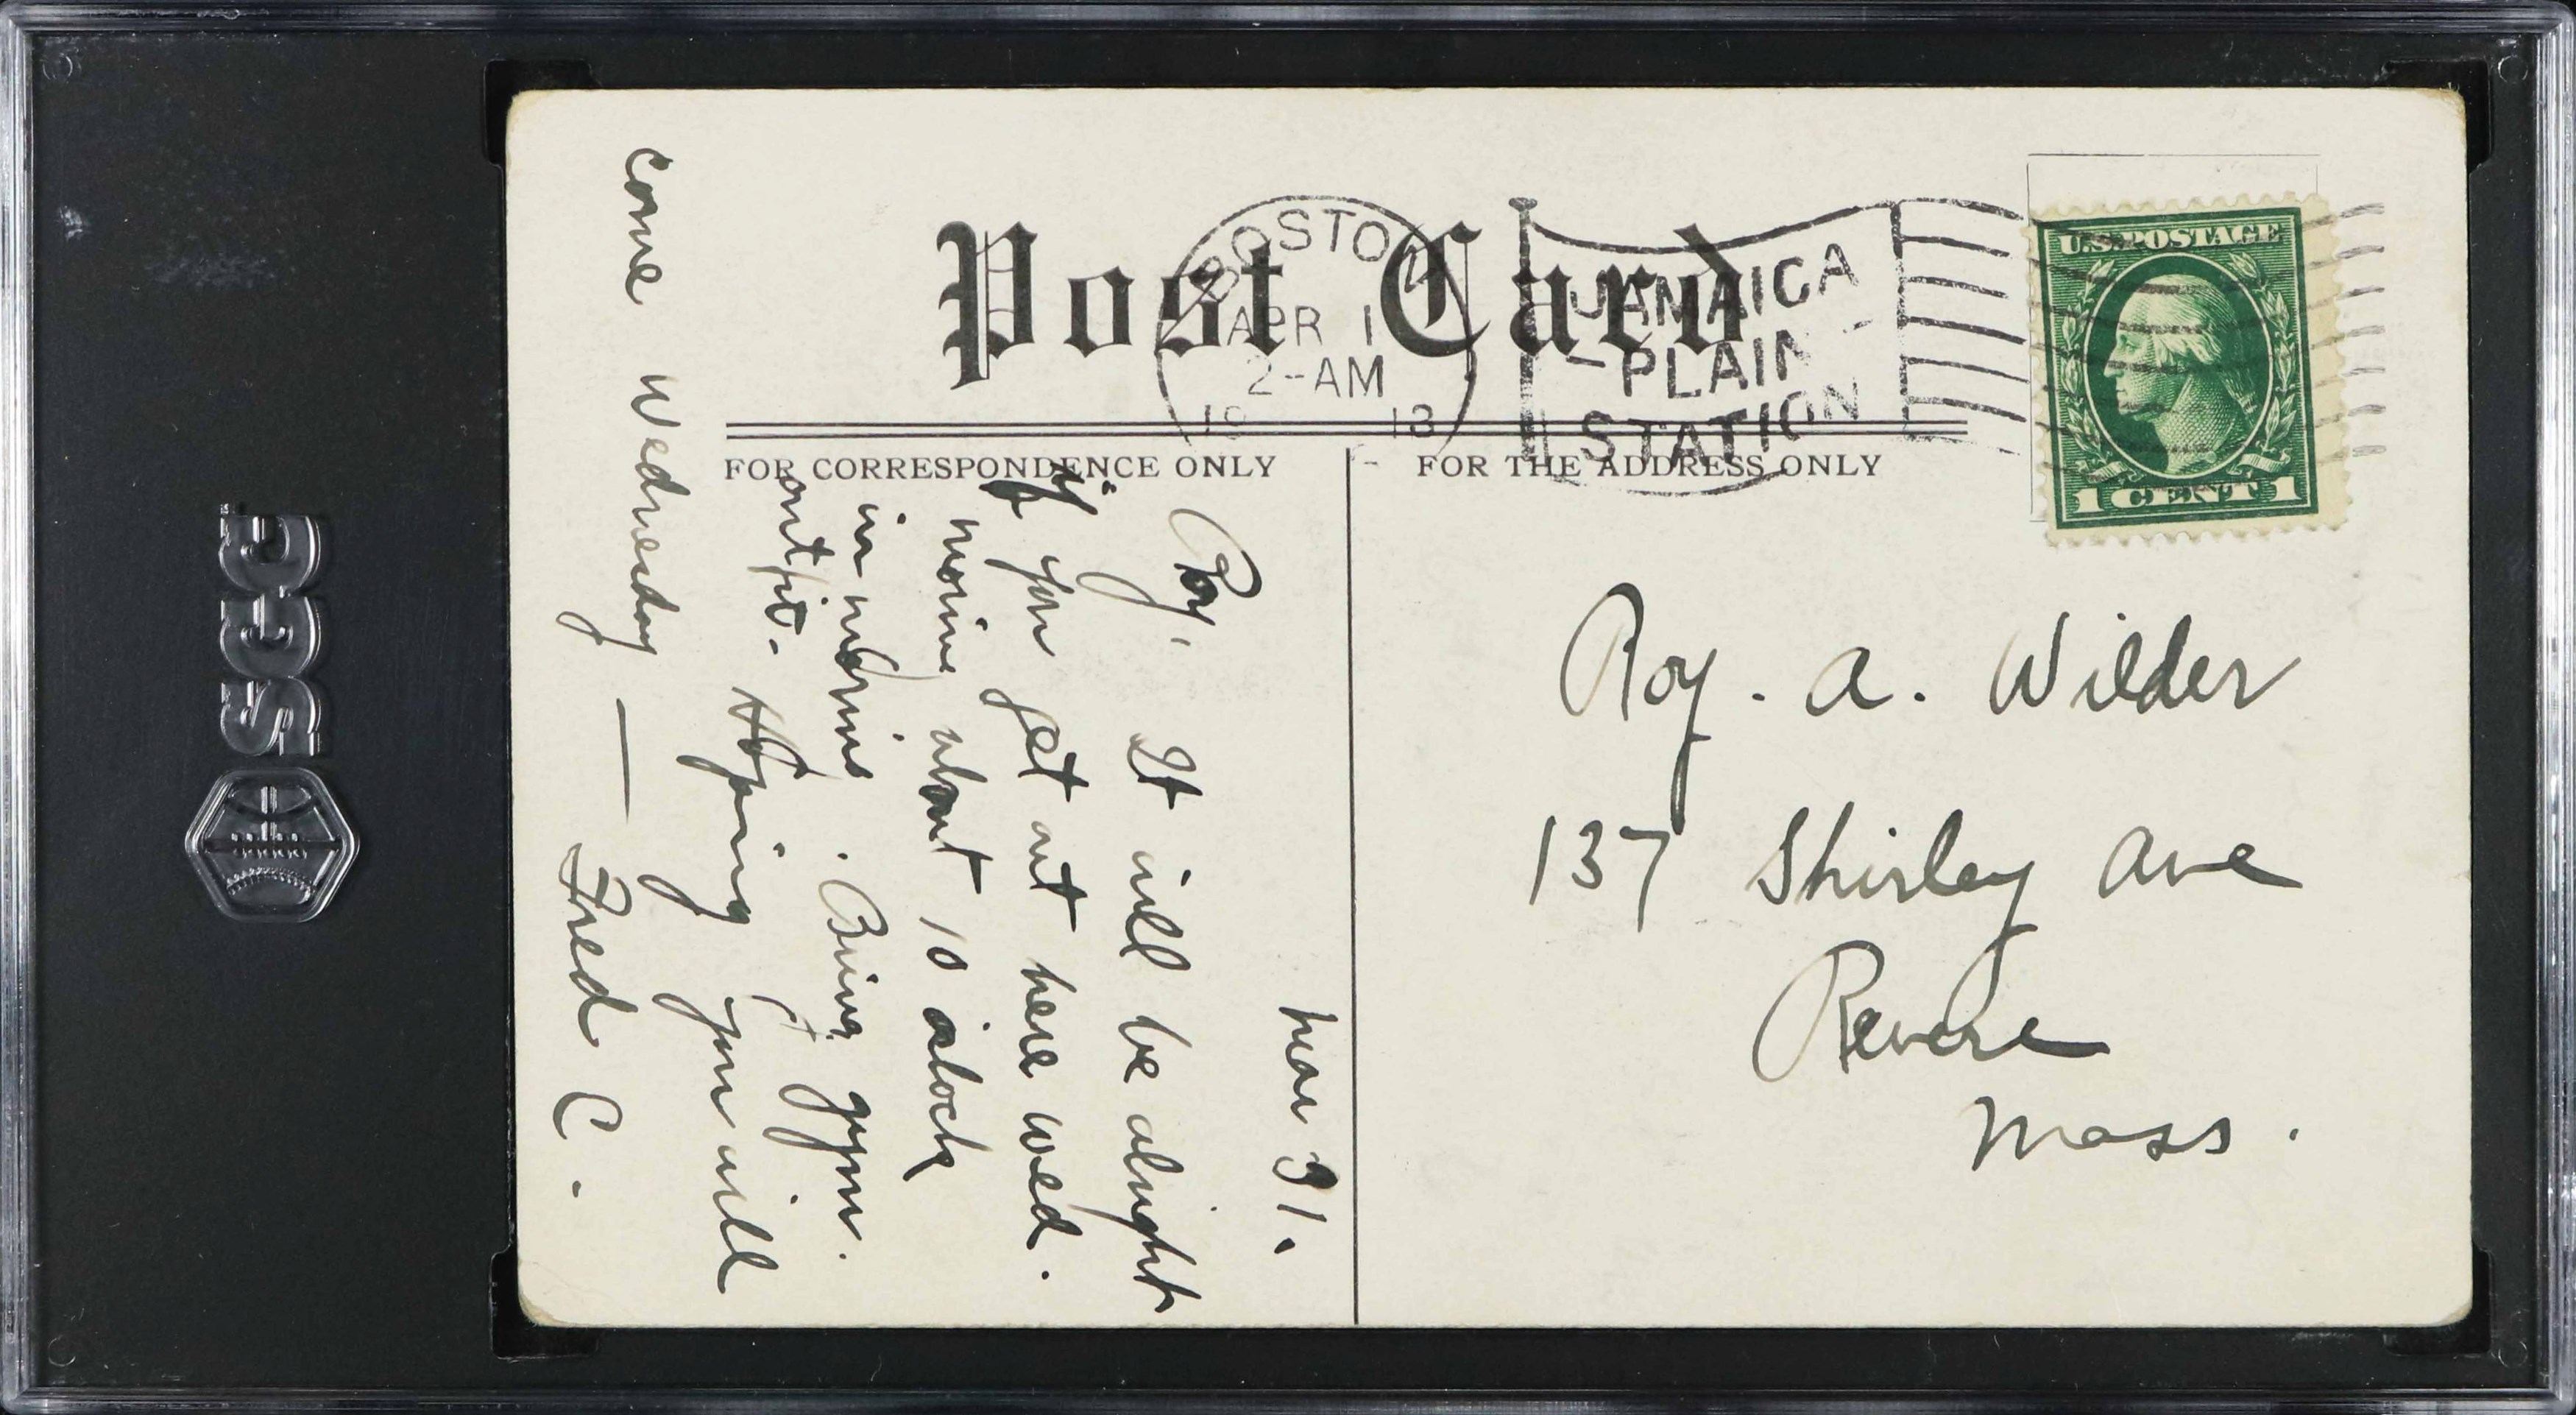 Post Card
BOSTON
APR 1
2-AM
1913
JAMAICA
PLAIN
STATION
U.S. POSTAGE
1 CENT 1
FOR CORRESPONDENCE ONLY
FOR THE ADDRESS ONLY
Mar 31.
Roy, It will be alright
if you get out here wed.
about 10 oclock
in . Bring gym.
outfit. Hoping you will
come Wednesday — Fred C.
Roy. A. Wilder
137 Shirley Ave
Revere
Mass.
SGC